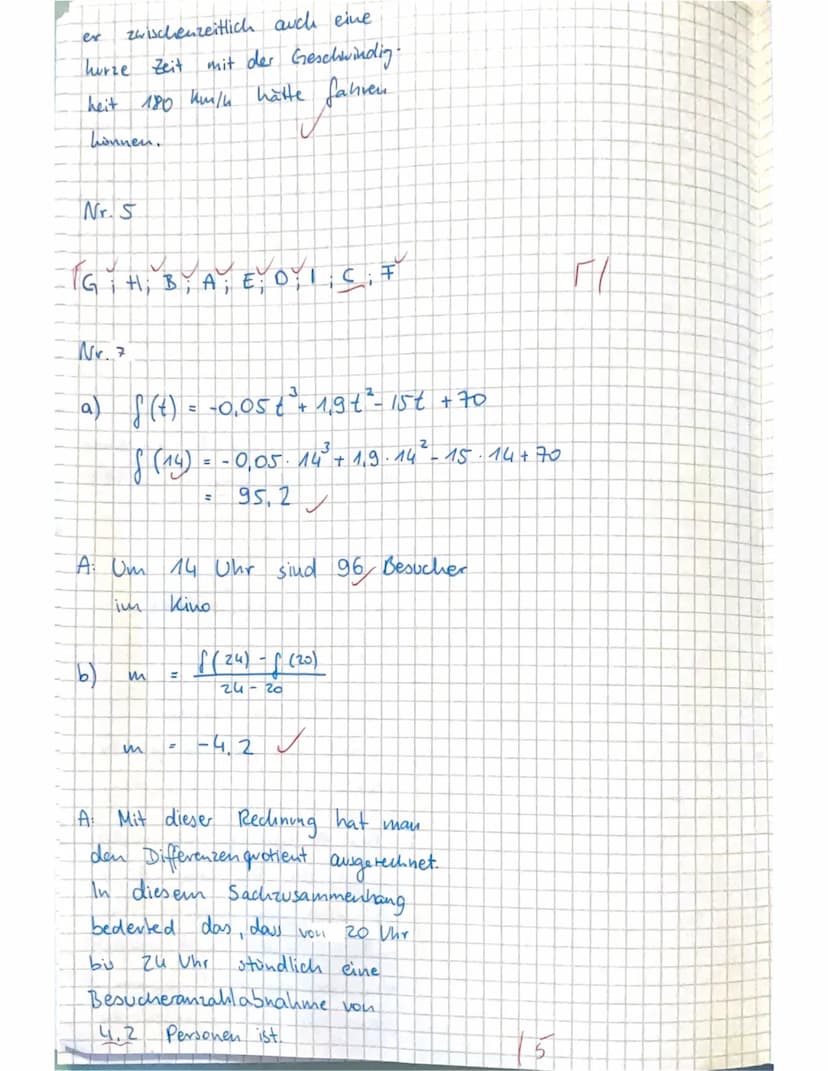 er zwischenzeitlich auch eine
kurze Zeit mit der Geschwindig-
keit 180 km/h hätte fahren
können.
Nr. 5
G; H; B; A; E; D; I; C; F
Nr. 7
a) f(t) = -0,05t³ + 1,9t² - 15t + 70
f(14) = -0,05 · 14³ + 1,9 · 14² - 15 · 14 + 70
= 95,2
A: Um 14 Uhr sind 96 Besucher
im Kino
b) m = f(24) - f(20) / 24 - 20
m = -4,2
A: Mit dieser Rechnung hat man
den Differenzenquotient ausgerechnet.
In diesem Sachzusammenhang
bedeuted das, dass von 20 Uhr
bis 24 Uhr stündlich eine
Besucheranzahlabnahme von
4,2 Personen ist.
/5